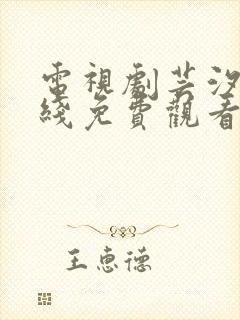 電視劇芸汐
綫免費觀看
王惠德